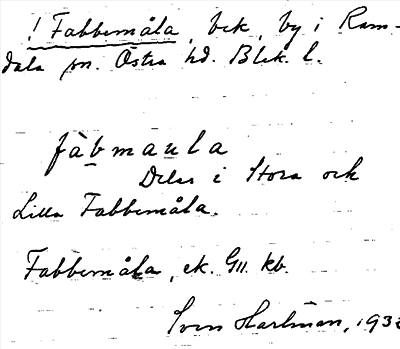 ! Fabbemåla, bck, by i Ram-
dala sn. Östra hd. Blek. l.
fàbmaula
Delas i Stora och
Lilla Fabbemåla.
Fabbemåla, ek. G11. kb.
Sven Hartman, 193